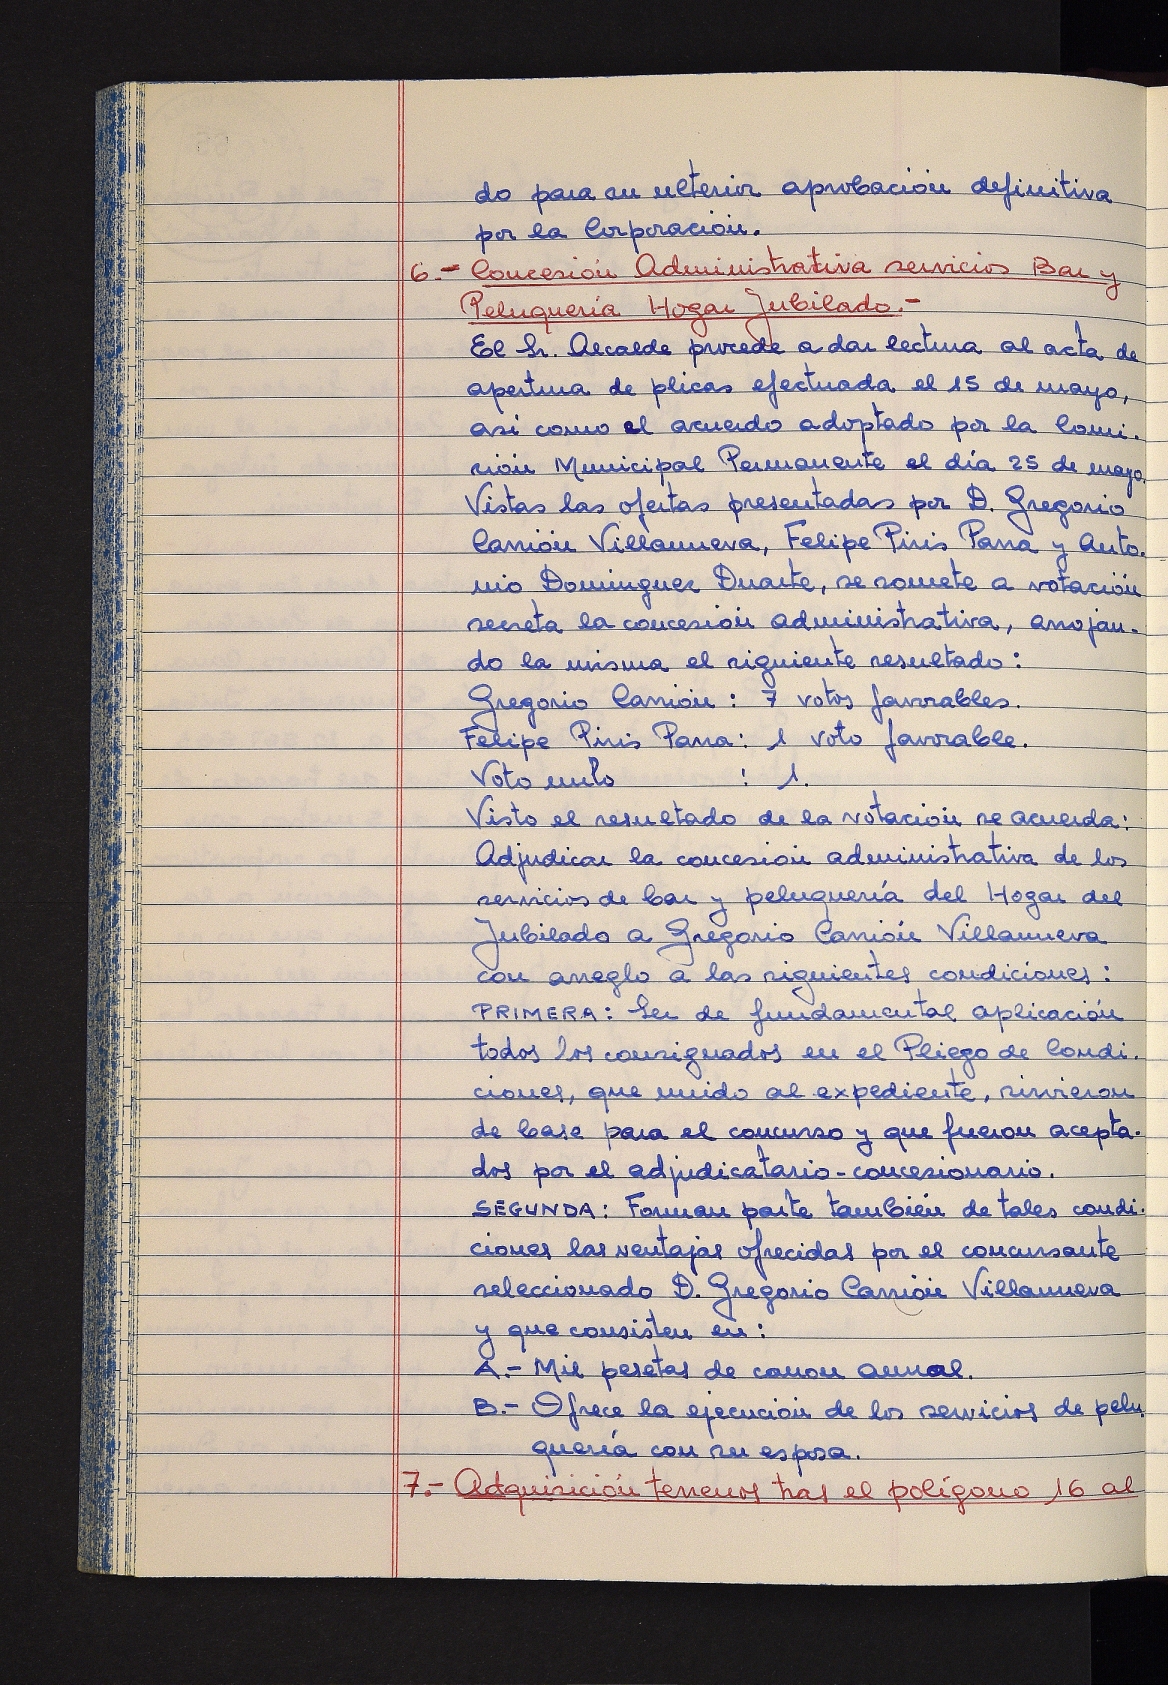 do para su ulterior aprobación definitiva
por la Corporación.
6.- Concesión Administrativa servicios Bar y
Peluquería Hogar Jubilado.-
El Sr. Alcalde procede a dar lectura al acta de
apertura de plicas efectuada el 15 de mayo,
así como el acuerdo adoptado por la Comi-
sión Municipal Permanente el día 25 de mayo.
Vistas las ofertas presentadas por D. Gregorio
Carrión Villanueva, Felipe Piris Parra y Anto-
nio Domínguez Duarte, se somete a votación
secreta la concesión administrativa, arrojan-
do la misma el siguiente resultado:
Gregorio Carrión: 7 votos favorables.
Felipe Piris Parra: 1 voto favorable.
Voto nulo : 1.
Visto el resultado de la votación se acuerda:
Adjudicar la concesión administrativa de los
servicios de bar y peluquería del Hogar del
Jubilado a Gregorio Carrión Villanueva
con arreglo a las siguientes condiciones:
PRIMERA: Ser de fundamental aplicación
todos los consignados en el Pliego de Condi-
ciones, que unido al expediente, sirvieron
de base para el concurso y que fueron acepta-
dos por el adjudicatario-concesionario.
SEGUNDA: Forman parte también de tales condi-
ciones las ventajas ofrecidas por el concursante
seleccionado D. Gregorio Carrión Villanueva
y que consisten en:
A.- Mil pesetas de canon anual.
B.- Ofrece la ejecución de los servicios de pelu-
quería con su esposa.
7.- Adquisición terrenos tras el polígono 16 al